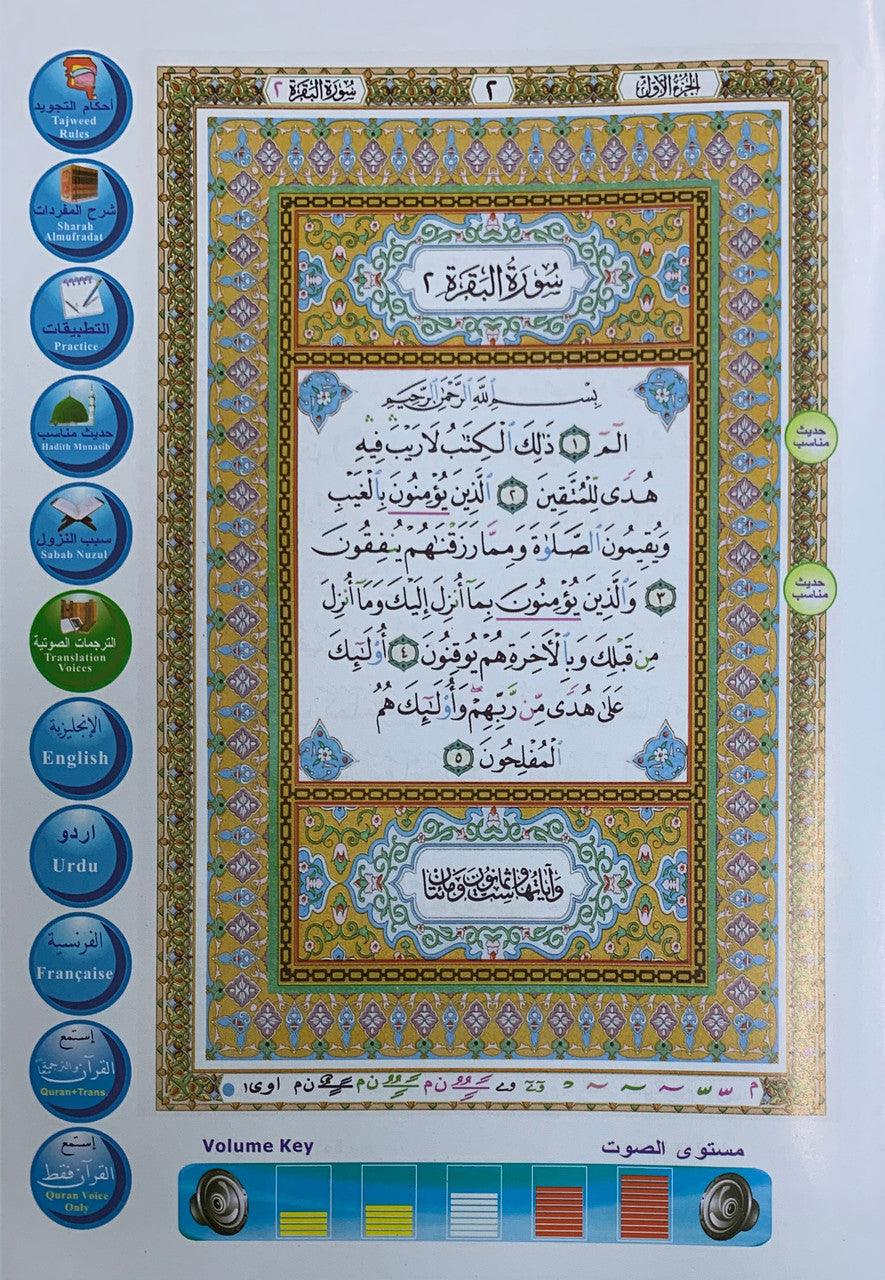 الجزء الأول
٢
سورة البقرة ٢
سُورَةُ البَقَرَةِ ٢
بِسْمِ ٱللَّهِ ٱلرَّحْمَٰنِ ٱلرَّحِيمِ
الٓمٓ ١ ذَٰلِكَ ٱلْكِتَٰبُ لَا رَيْبَ ۛ فِيهِ ۛ
هُدًى لِّلْمُتَّقِينَ ٢ ٱلَّذِينَ يُؤْمِنُونَ بِٱلْغَيْبِ
وَيُقِيمُونَ ٱلصَّلَوٰةَ وَمِمَّا رَزَقْنَٰهُمْ يُنفِقُونَ
٣ وَٱلَّذِينَ يُؤْمِنُونَ بِمَآ أُنزِلَ إِلَيْكَ وَمَآ أُنزِلَ
مِن قَبْلِكَ وَبِٱلْءَاخِرَةِ هُمْ يُوقِنُونَ ٤ أُو۟لَٰٓئِكَ
عَلَىٰ هُدًى مِّن رَّبِّهِمْ ۖ وَأُو۟لَٰٓئِكَ هُمُ
ٱلْمُفْلِحُونَ ٥
وآياتها ست وثمانون ومائتان
حديث
مناسب
حديث
مناسب
أحكام التجويد
Tajweed
Rules
شرح المفردات
Sharah
Almufradat
التطبيقات
Practice
حديث مناسب
Hadith Munasib
سبب النزول
Sabab Nuzul
الترجمات الصوتية
Translation
Voices
الإنجليزية
English
اردو
Urdu
الفرنسية
Française
إستمع
القرآن والترجمة معًا
Quran+Trans.
إستمع
القرآن فقط
Quran Voice
Only
Volume Key
مستوى الصوت